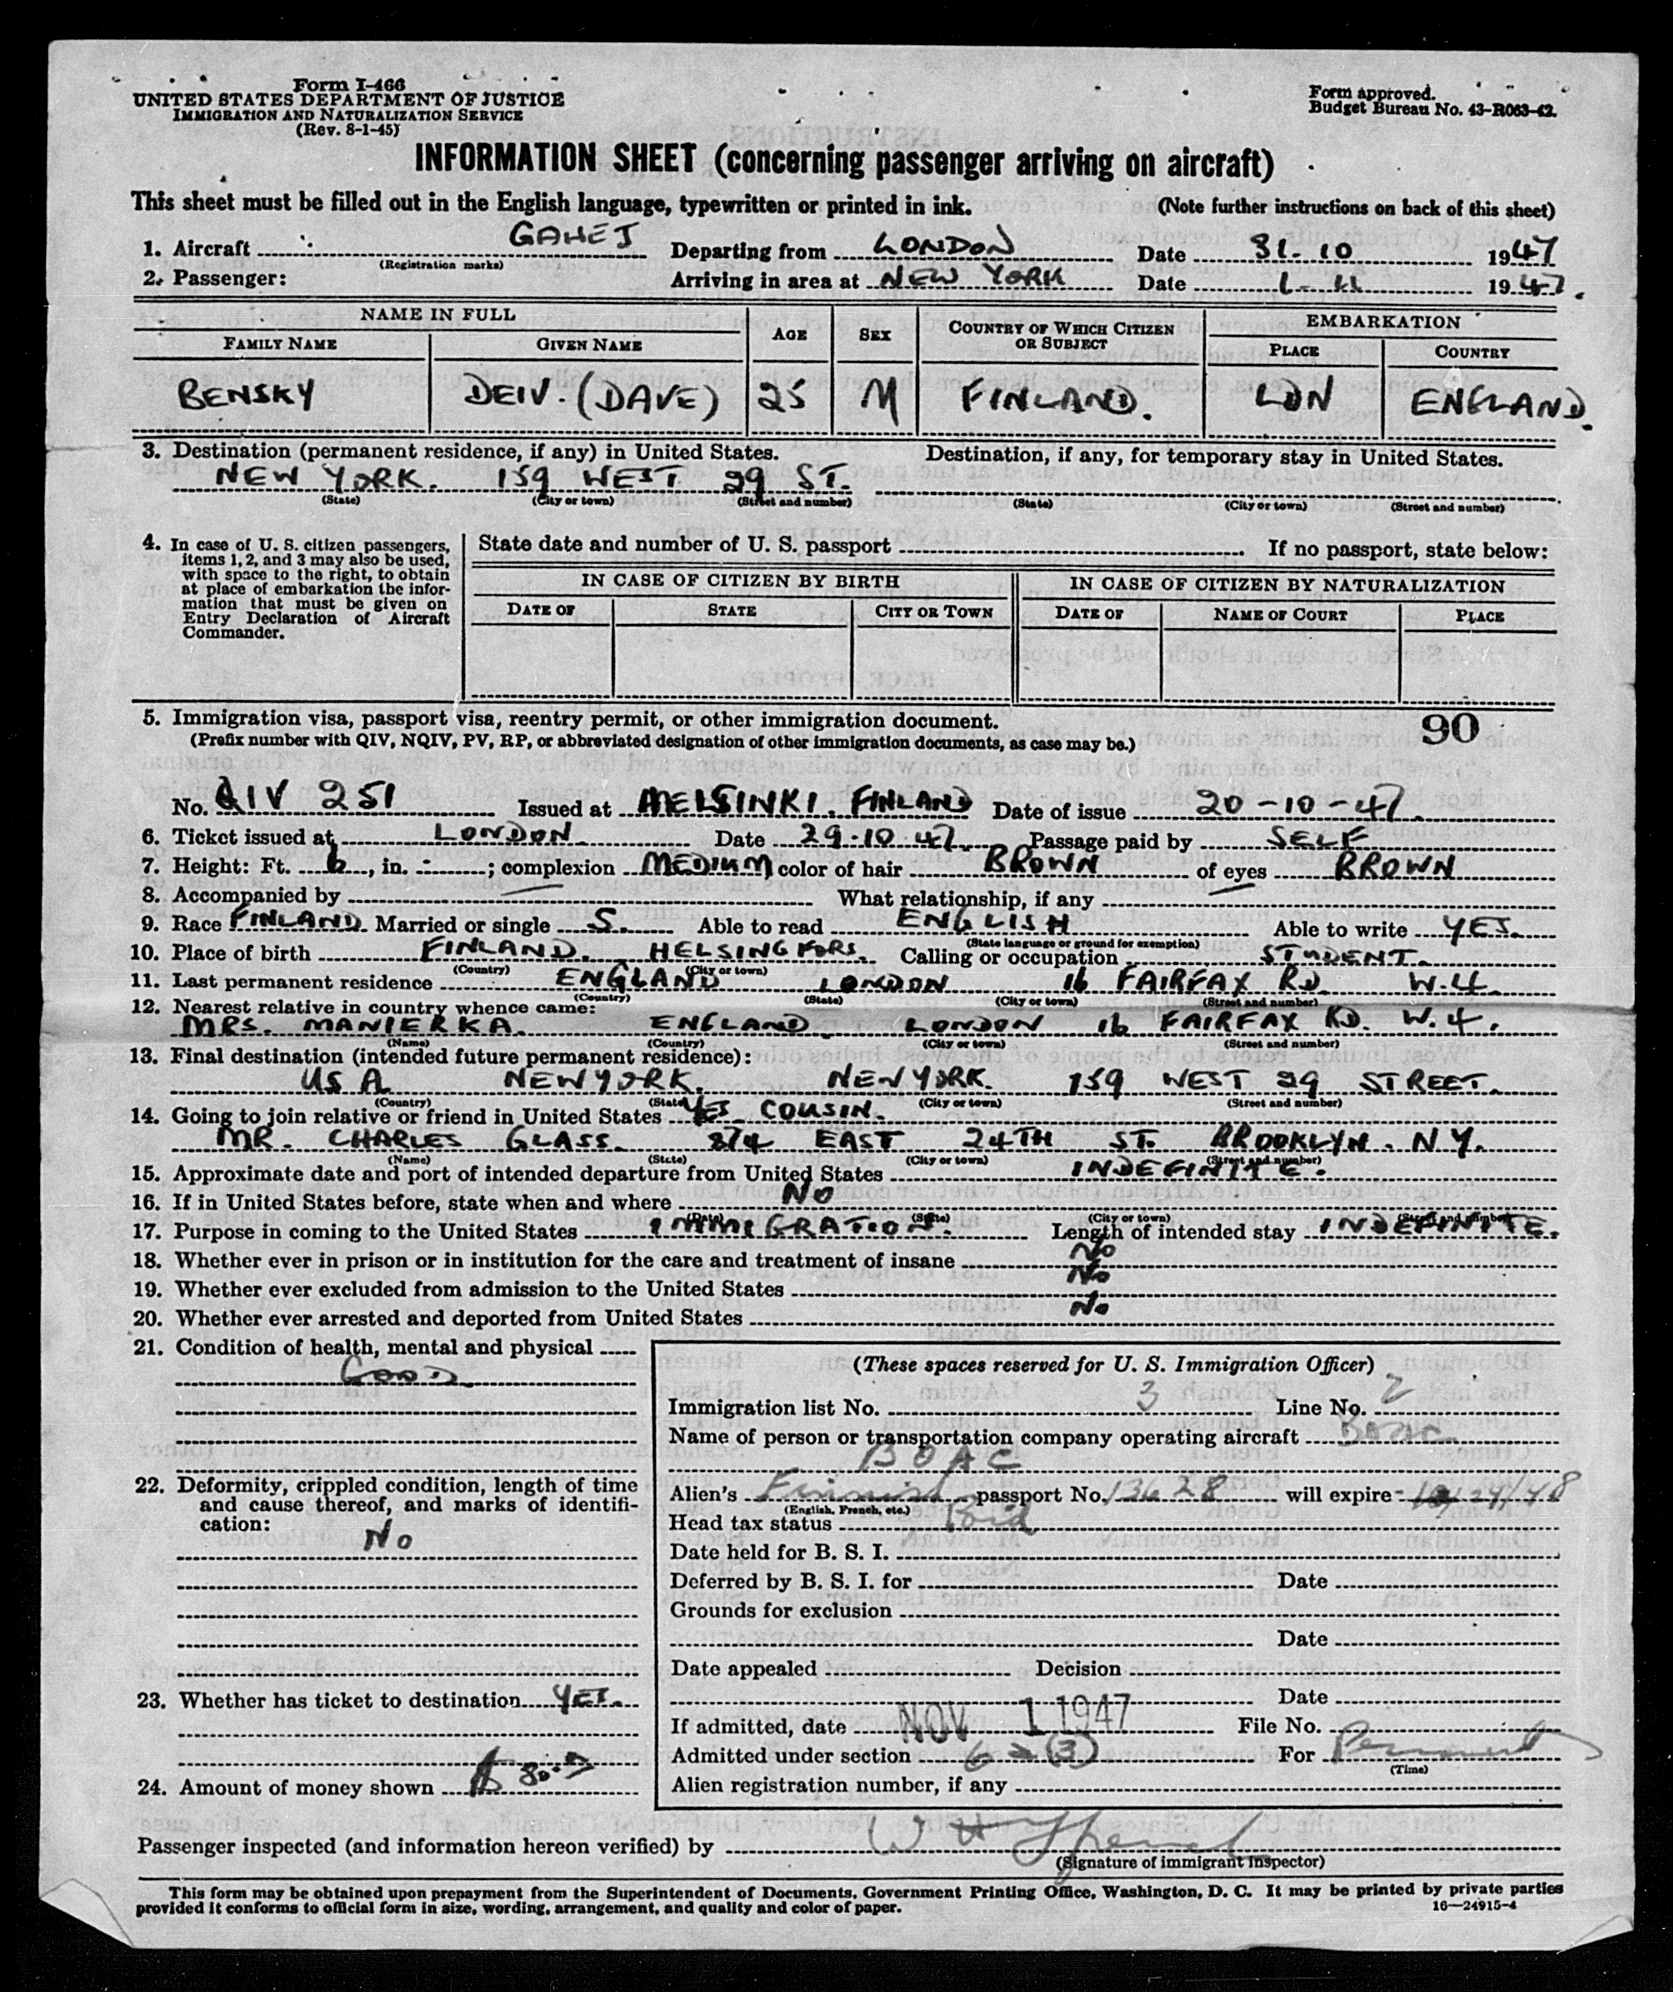 Form I-466
UNITED STATES DEPARTMENT OF JUSTICE
IMMIGRATION AND NATURALIZATION SERVICE
(Rev. 8-1-45)
Form approved.
Budget Bureau No. 43-R063-42.
INFORMATION SHEET (concerning passenger arriving on aircraft)
This sheet must be filled out in the English language, typewritten or printed in ink. (Note further instructions on back of this sheet)
1. Aircraft GAHEJ Departing from LONDON Date 31.10 1947
(Registration marks)
2. Passenger: Arriving in area at NEW YORK Date 1-11 1947.
NAME IN FULL AGE SEX COUNTRY OF WHICH CITIZEN OR SUBJECT EMBARKATION
FAMILY NAME GIVEN NAME PLACE COUNTRY
BENSKY DEIV. (DAVE) 25 M FINLAND. LDN ENGLAND.
3. Destination (permanent residence, if any) in United States. Destination, if any, for temporary stay in United States.
NEW YORK. 159 WEST 29 ST.
(State) (City or town) (Street and number) (State) (City or town) (Street and number)
4. In case of U. S. citizen passengers,
items 1, 2, and 3 may also be used,
with space to the right, to obtain
at place of embarkation the infor-
mation that must be given on
Entry Declaration of Aircraft
Commander.
State date and number of U. S. passport If no passport, state below:
IN CASE OF CITIZEN BY BIRTH IN CASE OF CITIZEN BY NATURALIZATION
DATE OF STATE CITY OR TOWN DATE OF NAME OF COURT PLACE
5. Immigration visa, passport visa, reentry permit, or other immigration document. 90
(Prefix number with QIV, NQIV, PV, RP, or abbreviated designation of other immigration documents, as case may be.)
No. QIV 251 Issued at HELSINKI, FINLAND Date of issue 20-10-47.
6. Ticket issued at LONDON. Date 29.10.47. Passage paid by SELF
7. Height: Ft. 6, in. -; complexion MEDIUM color of hair BROWN of eyes BROWN
8. Accompanied by — What relationship, if any —
9. Race FINLAND Married or single S. Able to read ENGLISH Able to write YES.
(State language or ground for exemption)
10. Place of birth FINLAND. HELSINGFORS. Calling or occupation STUDENT.
(Country) (City or town)
11. Last permanent residence ENGLAND LONDON 16 FAIRFAX RD W.4.
(Country) (State) (City or town) (Street and number)
12. Nearest relative in country whence came:
MRS. MANIERKA. ENGLAND. LONDON 16 FAIRFAX RD. W.4.
(Name) (Country) (City or town) (Street and number)
13. Final destination (intended future permanent residence):
USA NEW YORK. NEW YORK. 159 WEST 29 STREET.
(Country) (State) (City or town) (Street and number)
14. Going to join relative or friend in United States YES COUSIN.
MR. CHARLES GLASS. 874 EAST 24TH ST. BROOKLYN. N.Y.
(Name) (State) (City or town) (Street and number)
15. Approximate date and port of intended departure from United States INDEFINITE.
16. If in United States before, state when and where NO
(Date) (State) (City or town) (Street and number)
17. Purpose in coming to the United States IMMIGRATION. Length of intended stay INDEFINITE.
18. Whether ever in prison or in institution for the care and treatment of insane NO
19. Whether ever excluded from admission to the United States NO
20. Whether ever arrested and deported from United States NO
21. Condition of health, mental and physical
GOOD
22. Deformity, crippled condition, length of time
and cause thereof, and marks of identifi-
cation:
NO
23. Whether has ticket to destination YES.
24. Amount of money shown $ 80.-
(These spaces reserved for U. S. Immigration Officer)
Immigration list No. 3 Line No. 2
Name of person or transportation company operating aircraft BOAC
BOAC
Alien's Finnish passport No. 13628 will expire 10/29/48
(English, French, etc.)
Head tax status Paid
Date held for B. S. I.
Deferred by B. S. I. for Date
Grounds for exclusion
Date
Date appealed Decision
Date
If admitted, date NOV 1 1947 File No.
Admitted under section 6 a (3) For Permanent
(Time)
Alien registration number, if any
Passenger inspected (and information hereon verified) by
(Signature of immigrant inspector)
This form may be obtained upon prepayment from the Superintendent of Documents, Government Printing Office, Washington, D. C. It may be printed by private parties
provided it conforms to official form in size, wording, arrangement, and quality and color of paper. 16—24915-4